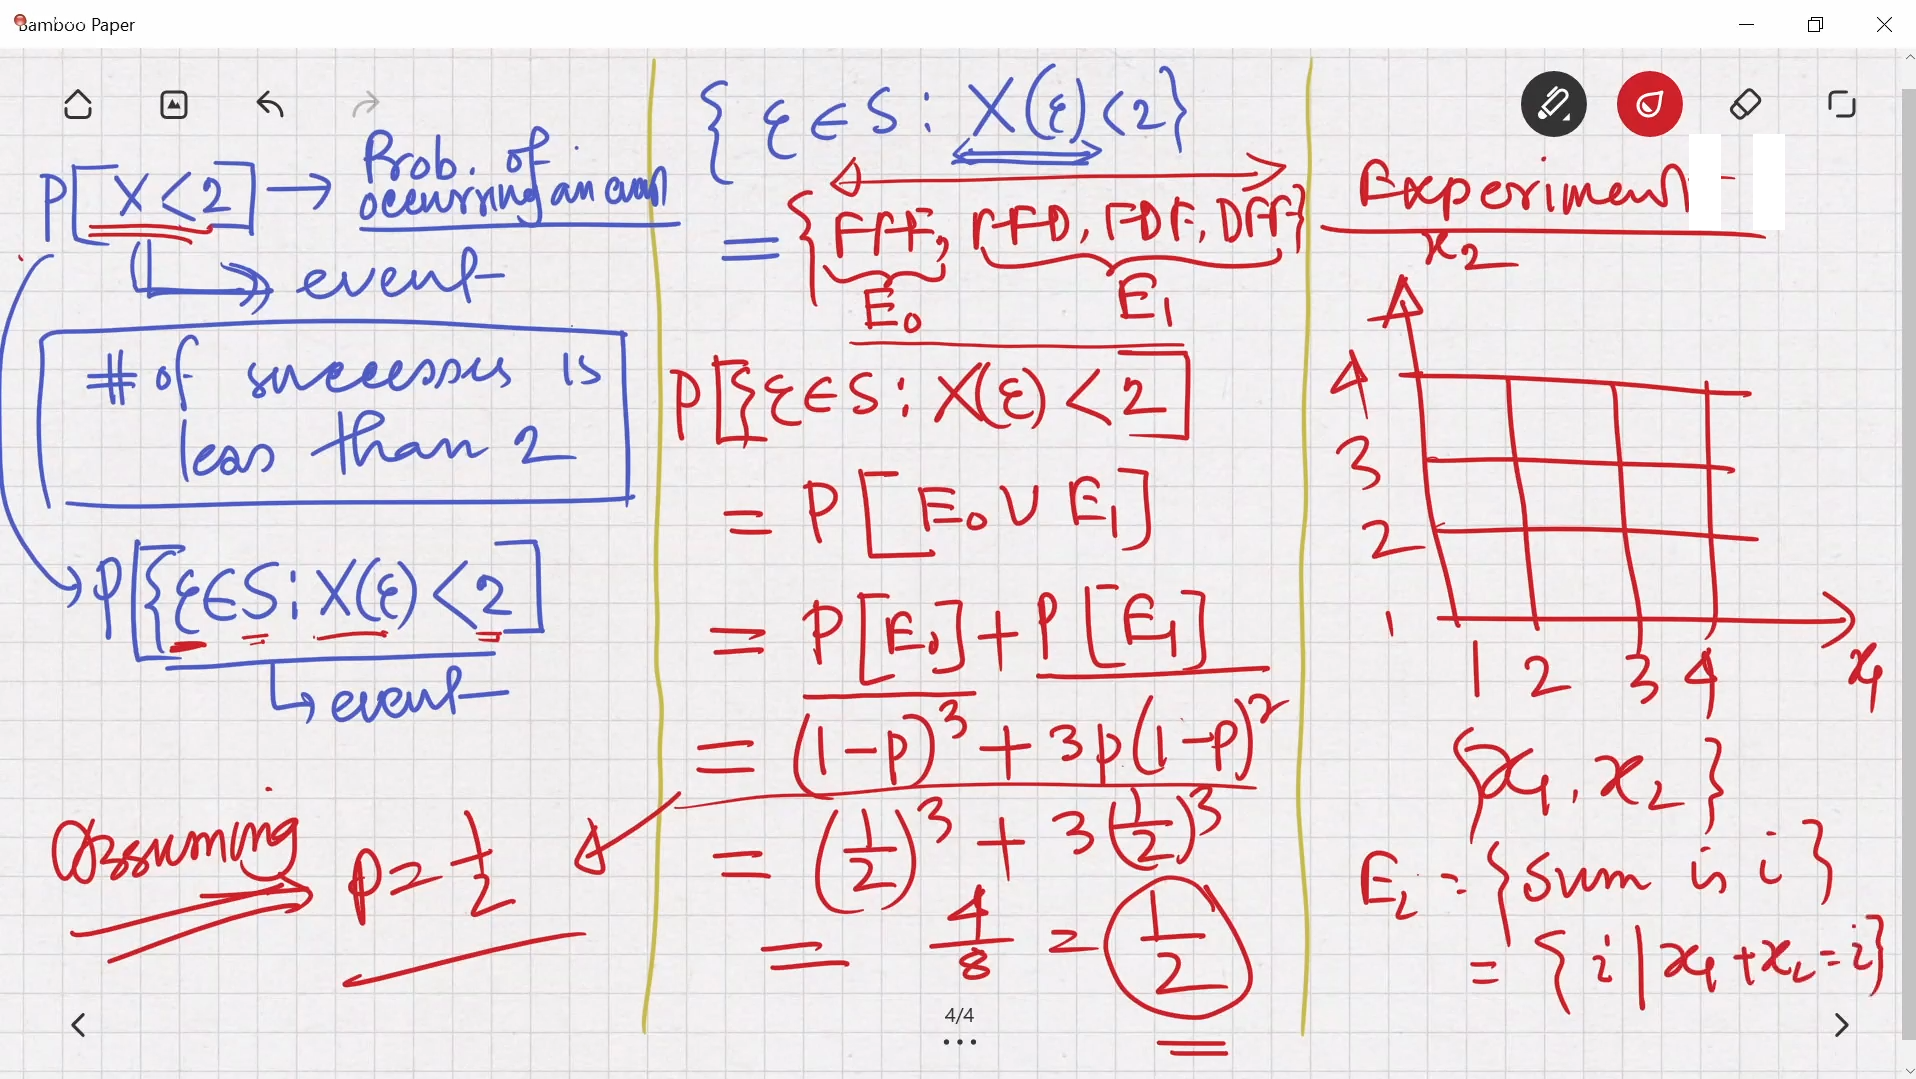 Bamboo Paper
P[X<2] → Prob. of
occurring an event
event
# of successes is
less than 2
P[{ξ∈S: X(ξ)<2]
event
Assuming P=1/2
{ξ∈S: X(ξ)<2}
= {FFF, FFD, FDF, DFF}
E₀ E₁
P[{ξ∈S: X(ξ)<2]
= P[E₀ ∪ E₁]
= P[E₀] + P[E₁]
= (1-p)³ + 3p(1-p)²
= (1/2)³ + 3(1/2)³
= 4/8 = 1/2
4/4
Experiment
x₂
4
3
2
1
1 2 3 4 x₁
{x₁, x₂}
E₂ = {sum is i}
= {i | x₁+x₂=i}